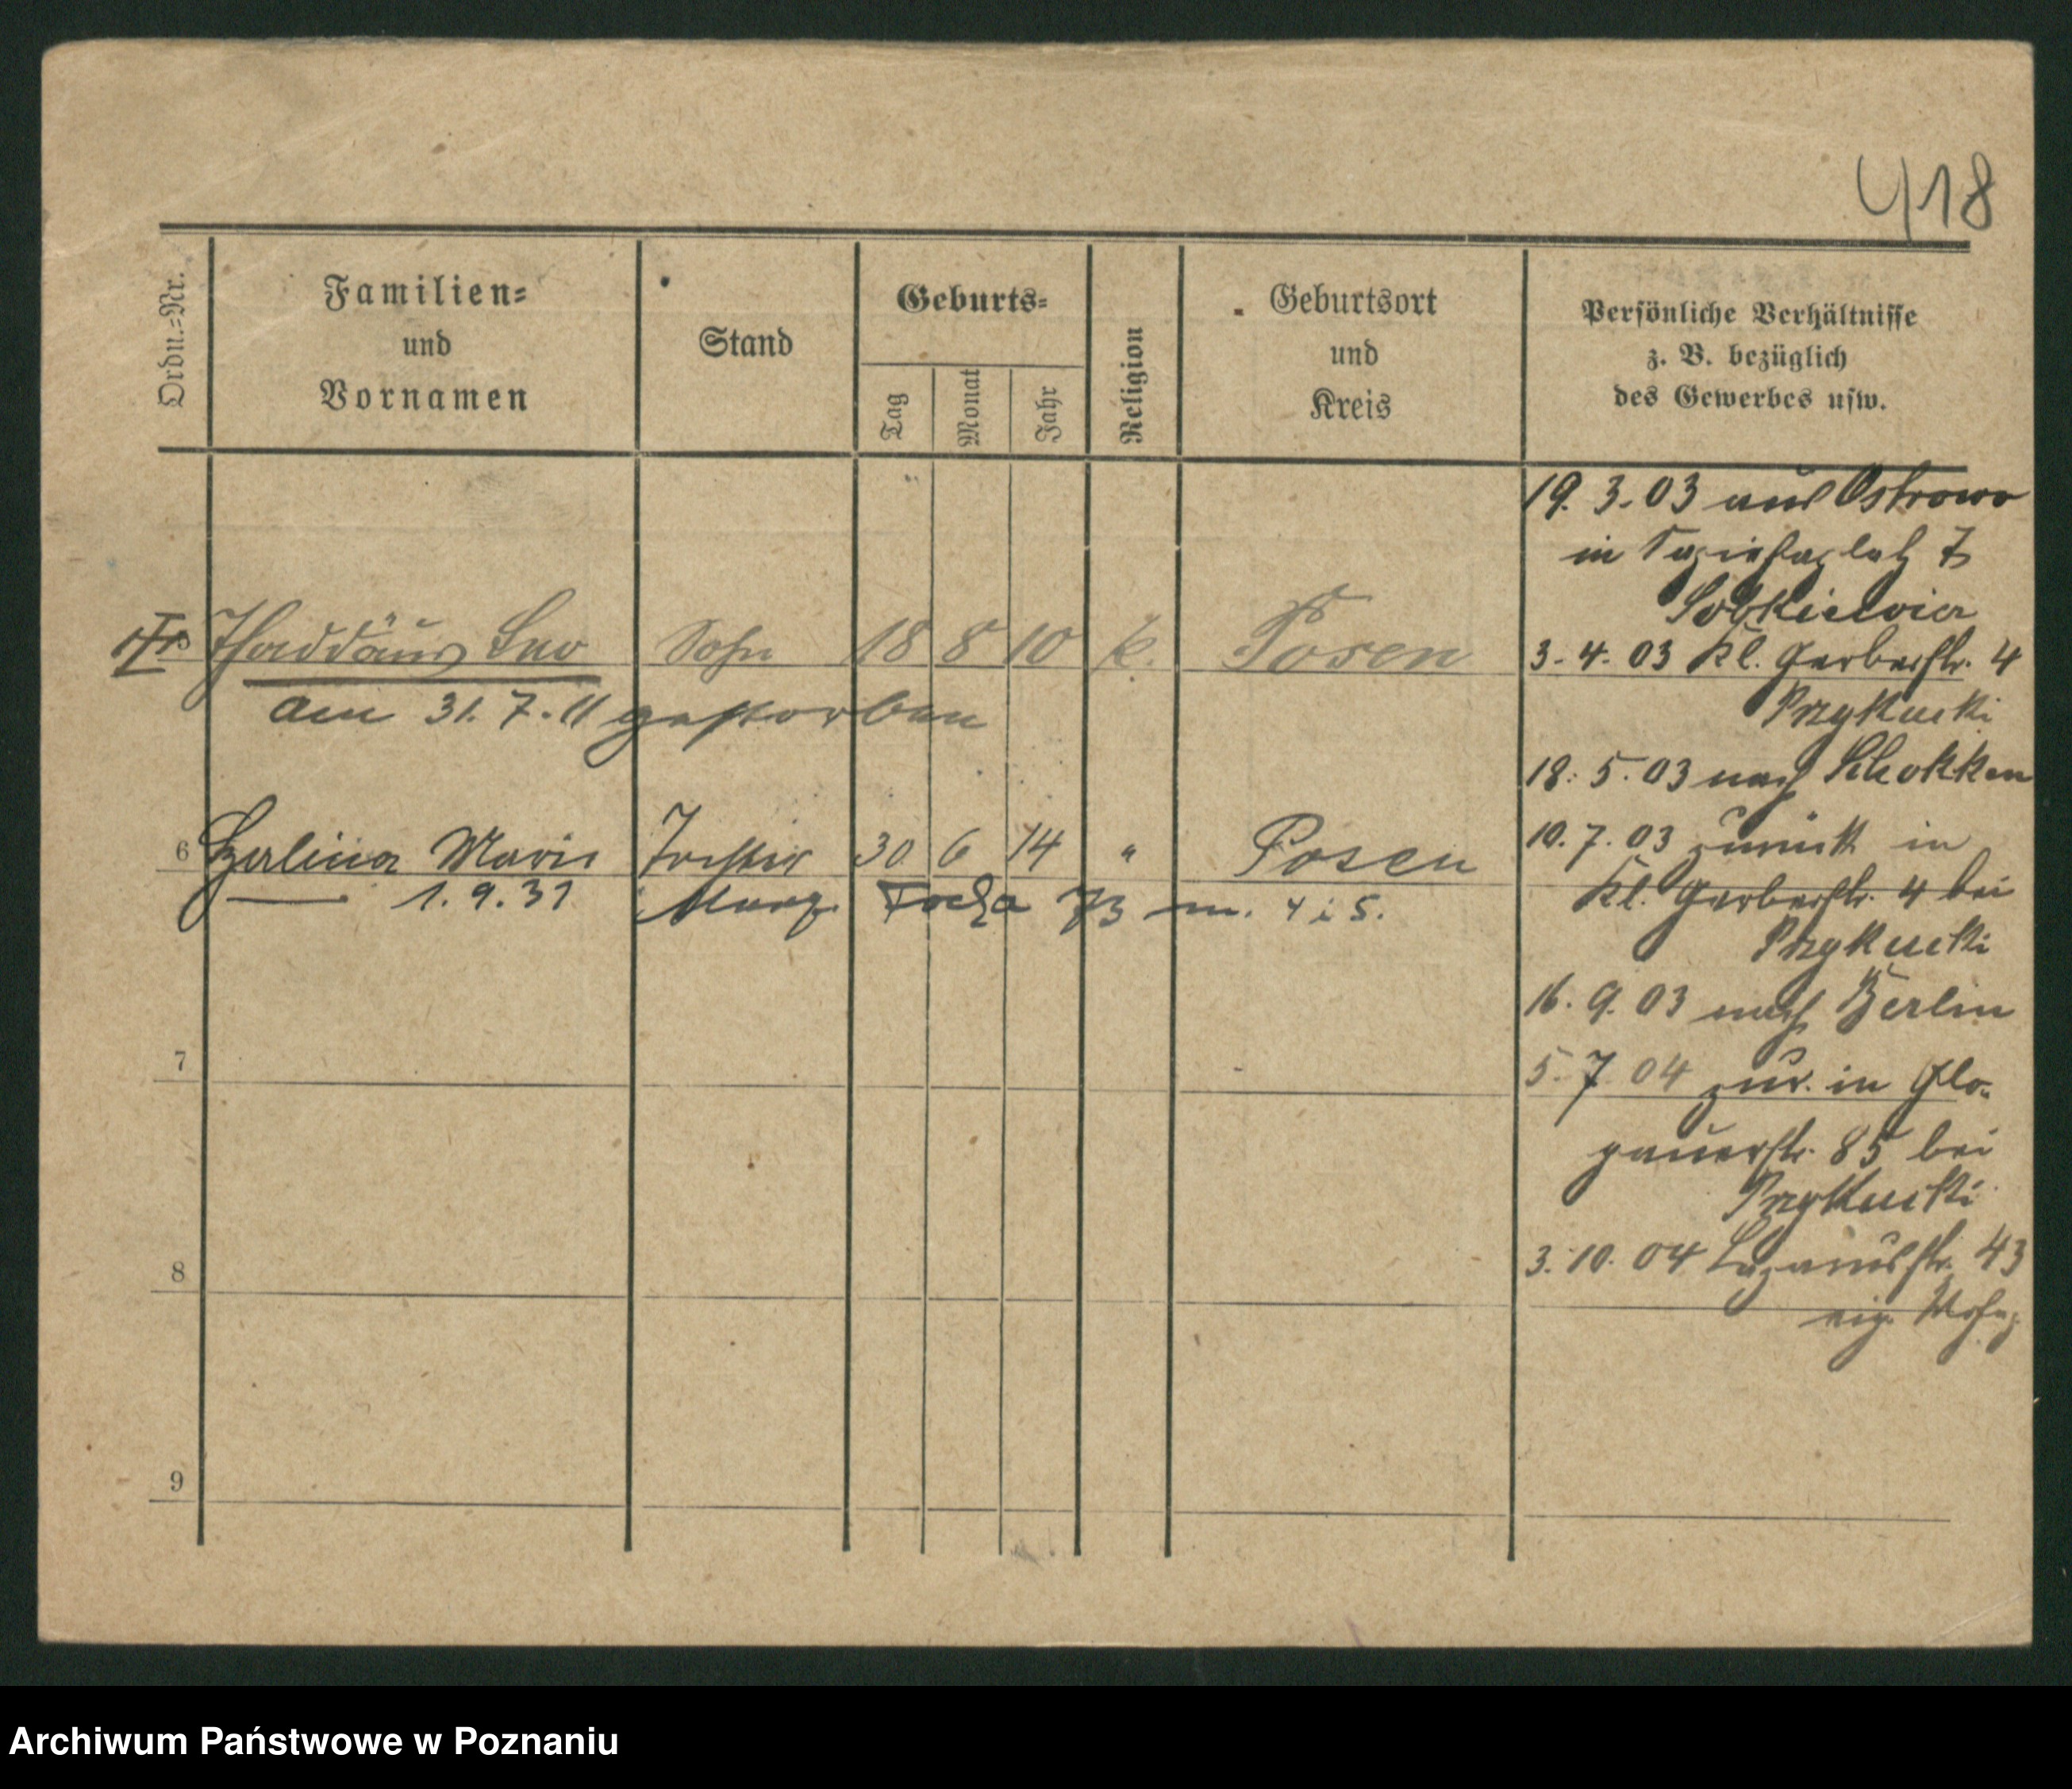 418
Ordn.=Nr.
Familien=
und
Vornamen
Stand
Geburts=
Tag
Monat
Jahr
Religion
Geburtsort
und
Kreis
Persönliche Verhältnisse
z. B. bezüglich
des Gewerbes usw.
19. 3. 03 aus Ostrowo
in 7
3. 4. 03 Kl. Gerberstr. 4
Przykucki
18. 5. 03 nach Schokken
10. 7. 03 zurück in
Kl. Gerberstr. 4 bei
Przykucki
16. 9. 03 nach Berlin
5. 7. 04 zur. in Glo-
gauerstr. 85 bei
Przykucki
3. 10. 04 Lazarusstr. 43
eig. Wohng
5 Thaddäus Leo Sohn 18 8 10 k. Posen
am 31. 7. 11 gestorben
6 Maria Tochter 30 6 14 " Posen
1. 9. 31 Focha 73 m. 4 i 5.
7
8
9
Archiwum Państwowe w Poznaniu